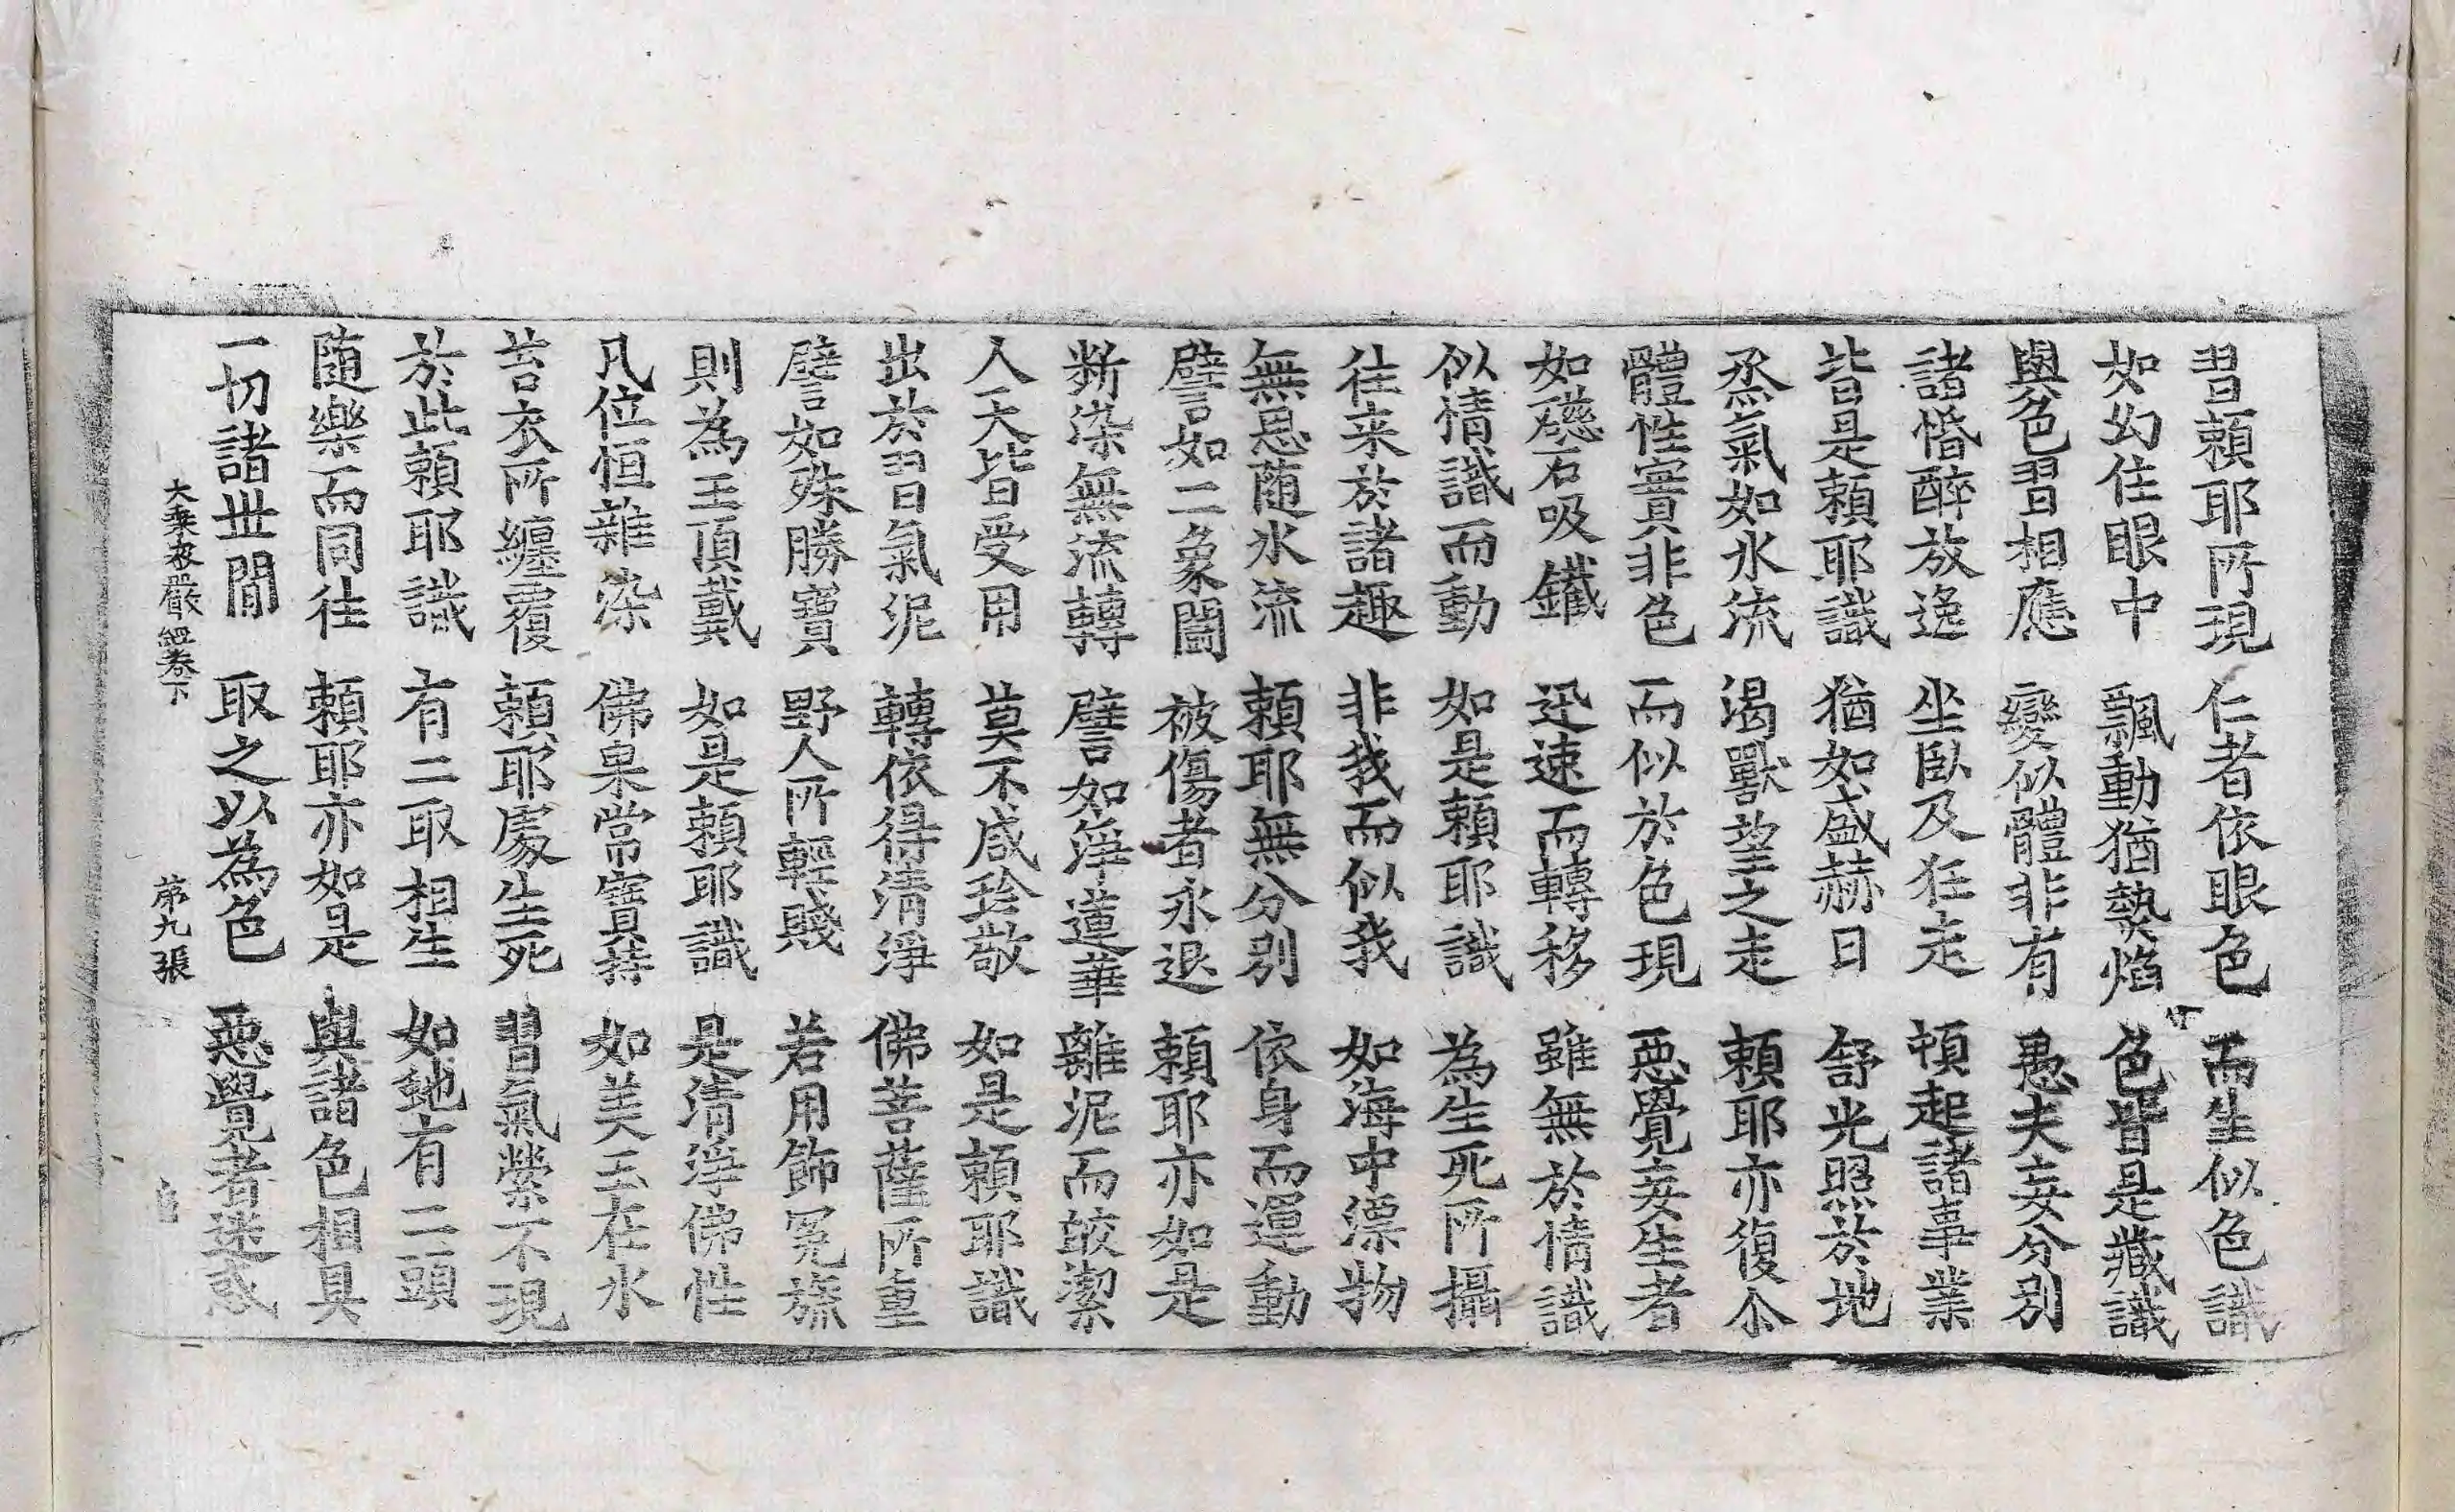 習頼耶所現 仁者依眼色 而生似色識
如幻住眼中 飄動猶熱焰 色皆是藏識
與色習相應 變似體非有 愚夫妄分別
諸惛醉放逸 坐臥及狂走 頓起諸事業
皆是頼耶識 猶如盛赫日 舒光照於地
烝氣如水流 渴獸望之走 頼耶亦復尒
體性實非色 而似於色現 惡覺妄生者
如礠石吸鐵 迅速而轉移 雖無於情識
似情識而動 如是頼耶識 為生死所攝
往来於諸趣 非我而似我 如海中漂物
無思随水流 頼耶無分別 依身而運動
譬如二象鬪 被傷者永退 頼耶亦如是
斷染無流轉 譬如淨蓮華 離泥而皎潔
人天皆受用 莫不咸珍敬 如是頼耶識
出於習氣泥 轉依得清淨 佛菩薩所重
譬如殊勝寶 野人所輕賤 若用飾冕旒
則為王頂戴 如是頼耶識 是清淨佛性
凡位恒雜染 佛果常寶持 如美玉在水
苔衣所纏覆 頼耶處生死 習氣縈不現
於此頼耶識 有二取相生 如虵有二頭
随樂而同往 頼耶亦如是 與諸色相具
一切諸世間 取之以為色 惡覺者迷惑
大乗宻嚴經卷下 苐九張